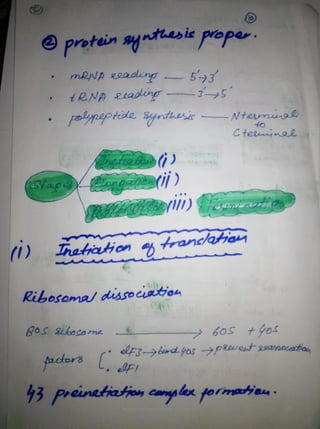 ② protein synthesis proper.
• mRNA reading — 5'→3'
• tRNA reading — 3'→5'
• polypeptide synthesis — N terminal
to
C terminal
Stages
Inetiation (i)
Elongation (ii)
(iii) Termination
(i) Inetiation of translation
Ribosomal dissociation
80S ribosome → 60S + 40S
factors • eIF3 → bind 40s → prevent reassociation
• eIF1
43 preinetiation complex formation.